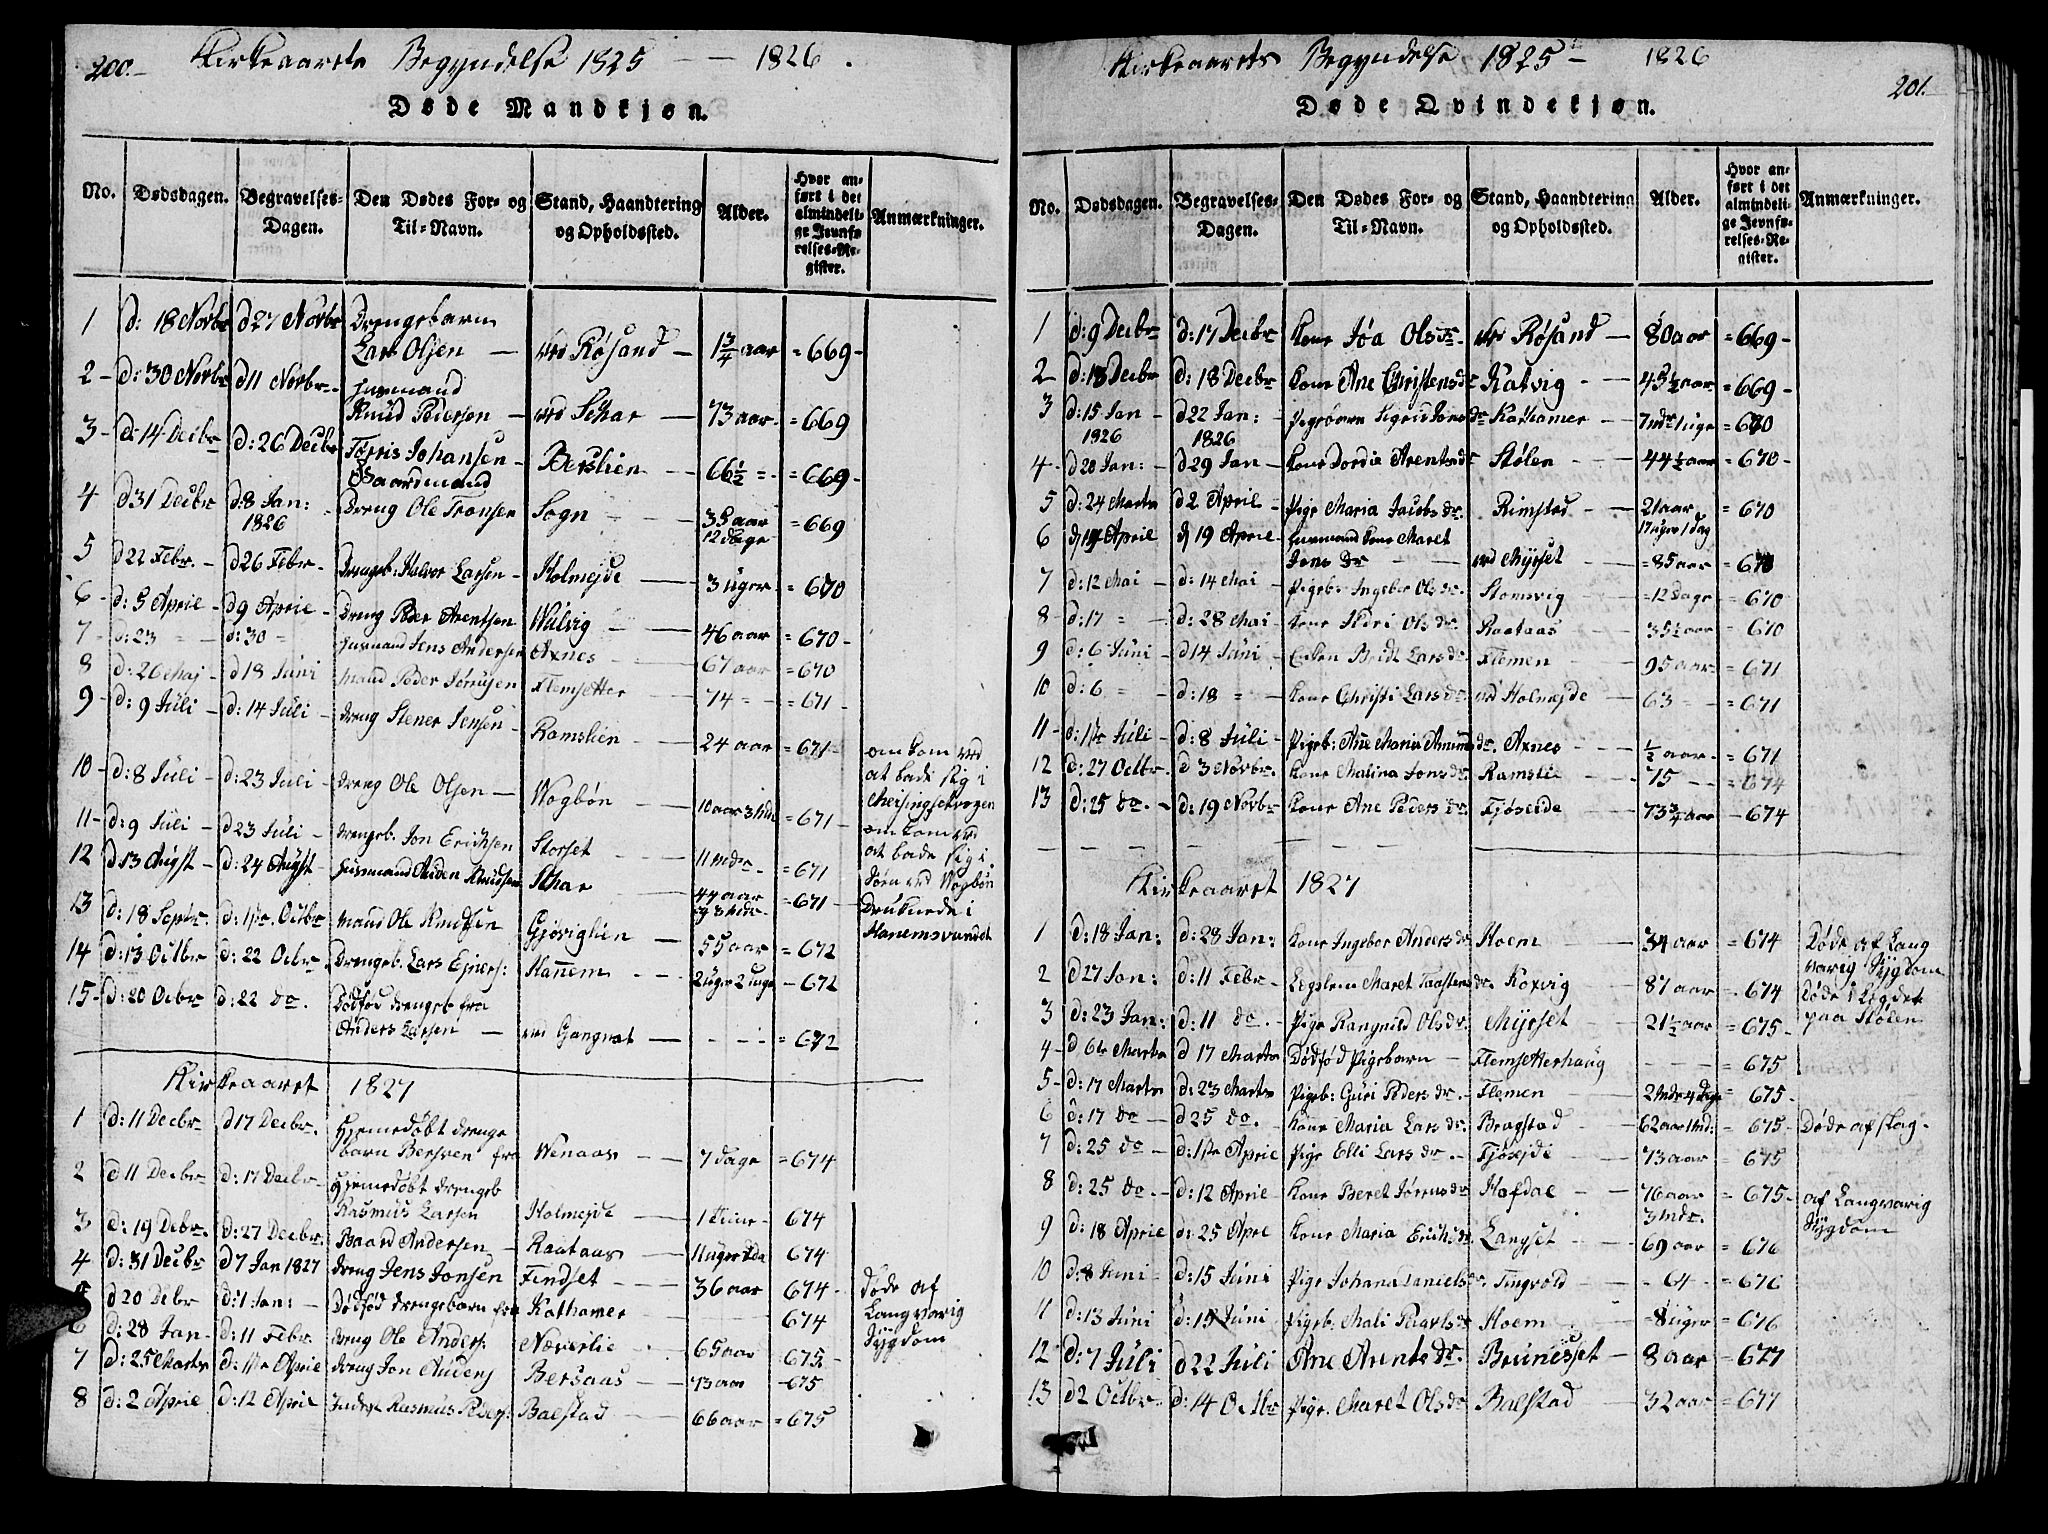 200.
Kirkeaarets Begyndelse 1825 — — 1826.
Døde Mandkjøn.
No. Dødsdagen. Begravelses-Dagen. Den Dødes For- og Til-Navn. Stand, Haandtering og Opholdssted. Alder. Hvor anført i det almindelige Jevnførelses-Register. Anmærkninger.
1 d: 18 Novbr d 27 Novbr Drengebarn
Lars Olsen — ved Røsand — 1 3/4 aar = 669 -
2 - d: 30 Novbr d 11 Novbr - Huusmand
Knud Pedersen — ved Schar — 73 aar - = 669
3 - d: 14 Decbr d: 26 Decbr Johansen - Berslien — 66 1/2 = - = 669 -
Gaardmand
4 d 31 Decbr d: 8 Jan: 1826 Dreng Ole Tronsen Sogn — 35 aar 12 dage = 669
5 d 22 Febr. - d 26 Febr - Drengeb: Halvor Larsen - Holmejde — 3 uger - = 670
6 - d: 5 April - d 9 April - Dreng Peder Arentsen Walvig — 46 aar = 670 -
7 - d: 23 = - d: 30 = Huusmand Jens Andersen Axnes - — 67 aar = 670
8 d: 26 Maj - d 18 Juni Mand Peder Flemsetter — 74 = - = 671 -
9 - d: 9 Juli - d: 14 Juli - Dreng Stener Jensen - Ramslien — 24 aar = 671 - omkom ved
at bade sig i
10 - d: 8 Juli - d: 23 Juli - Dreng Ole Olsen — Wogbøn — 10 aar 3 Mdr = 671 - Meisingsetvogen
omkom ved
11 - d: 9 Juli - d 23 Juli - drengeb. Jon Erichsen Storset — 11 mdr - = 671 at bade sig i
Søen ved Wogbøn
12 d 13 Augst - d: 24 Augst - Huusmand Auden Knudsen Schar — 44 aar og 3 Mdr - = 671 - Druknede i
Hanemsvandet
13 d: 18 Septbr. d: 1ste Octbr Mand Ole Knudsen Gjøviglien — 55 aar = 672
14 - d: 13 Octbr d: 22 Ocbr. Drengeb. Lars Ejners: Hanem - — = 672
15 - d: 20 Ocbr d: 22 do. Dødfød drengeb fra
Anders Larsen — ved Gangnat — - - - = 672
Kirkeaaret 1827
1 d: 11 Decbr d 17 Decbr. Hjemedøbt drenge
barn fra Wenaas — 7 dage = 674
2 d 11 Decbr d: 17 Decbr - Hjemedøbt drengeb
Rasmus Larsen Holmejde — 674
3 d: 19 Debr. d: 27 Decbr. Baard Andersen Raataas — 674
4 d: 31 Decbr d 7 Jan 1827 dreng Jens Jonsen Findset — 36 aar 674 - døde af
5 d 20 Debr d: 1 Jan: - Dødfød drengebarn fra Kathamer — 674 Langvarig
6 d: 28 Jan - d: 11 Febr. dreng Ole Anders: Næverlie — 65 aar - 675 - Sygdom
7 d: 25 Marts d: 1ste April dreng Jon Anders Bersaas — 73 aar - 675
8 d: 2 April d: 12 April Inderst Rasmus Peders: Balstad — 66 aar = 675
Kirkeaarets Begyndelse 1825 — 1826
201.
Døde Qvindekjøn.
No. Dødsdagen. Begravelses-Dagen. Den Dødes For- og Til-Navn. Stand, Haandtering og Opholdssted. Alder. Hvor anført i det almindelige Jevnførelses-Register. Anmærkninger.
1 d: 9 Decbr d: 17 Decbr Kone Olsdr. ved Røsand — 80 aar = 669 -
2 d: 13 Decbr d: 18 Decbr Kone Ane Christensdr Katvig — 45 1/2 aar = 669 -
3 d: 15 Jan 1826 - d 22 Jan: 1826 Pigebarn Sigrid Jonsdr Kathamer — 7 mdr 1 uge = 670
4 - d 20 Jan: - d 29 Jan - Kone Dordie Arentsdr Stølen — 44 1/2 aar = 670 -
5 d: 24 Marts d 2 April - Pige Maria Jacobsdr. Rimstad — 21 aar 17 uger 1 dag = 670
6 d 14 April d 19 April - Huusmand Kone Maret
Jens Dr — ved Myrset — = 85 aar = 670
7 d: 12 Mai - d: 14 Mai - Pigeb: Ingebor Olsdr. Stomsvig — = 12 Dage = 670
8 d: 17 = - d: 28 Mai - Kone Olsdr Raataas — 35 1/2 aar = 670
9 d: 6 Juni - d 14 Juni - Enken Larsdr Flemen — 95 aar - = 671
10 d: 6 = - d: 18 = - Kone Christi Larsdr ved Holmejde — 63 = - = 671
11 - d: 1ste Juli - d: 8 Juli - Pigeb: Ane Maria dr. Axnes — 1/2 aar - = 671
12 d: 27 Octbr d 3 Novbr. Kone Malina Jonsdr. Ramslie — 75 — = 674
13 d: 25 do. - d: 19 Novbr Kone Ane Peders dr. Fjøseide — 73 3/4 aar - 674
Kirkeaaret 1827
1 d: 18 Jan: d: 28 Jan: Kone Ingebor Andersdr Hoem — 34 aar = 674 Døde af Lang
varig Sygdom
2 d 27 Jan: d: 11 Febr - Maret dr. Koxvig — 87 aar - 674 Døde i Legdet
paa Stølen
3 d: 23 Jan: d: 11 do. - Pige Rangnild Olsdr. Myrset — 21 1/2 aar = 675 -
4 - d 6te Marts d 17 Marts Dødfød Pigebarn - Flemsetterhaug - - - = 675
5 - d: 17 Marts d: 23 Marts Pigeb: Guri Peders dr. - Flemen — 2 Mdr 4 dage = 675 -
6 d: 17 do - d 25 do. - Kone Maria Lars dr. Bragstad — 62 aar 1 Md: = 675 - Døde af slag -
7 d: 25 do - d: 1ste April Pige Elli Lars dr - Fjøsejde — 73 aar = 675
8 d: 25 do. - d: 12 April - Kone Beret Hafdal — 76 aar 3 Mdr. = 675 - af Langvarig
Sygdom
9 d: 18 April d: 25 April Kone Maria Erichsdr Langset — 69 aar = 676
10 d: 8 Juni - d: 15 Juni Pige Johana Danielsdr. Tingvold — - 64 - = 676
11 d: 13 Juni d: 15 Juni Pigeb: Mali Hoem — 8 uger = 676
12 - d: 7 Juli d 22 Juli Ane Arents dr. Brunesset — 8 aar = 677
13 d 2 Octbr. d: 14 Octbr Pige. Maret Olsdr Balstad — 32 aar = 677